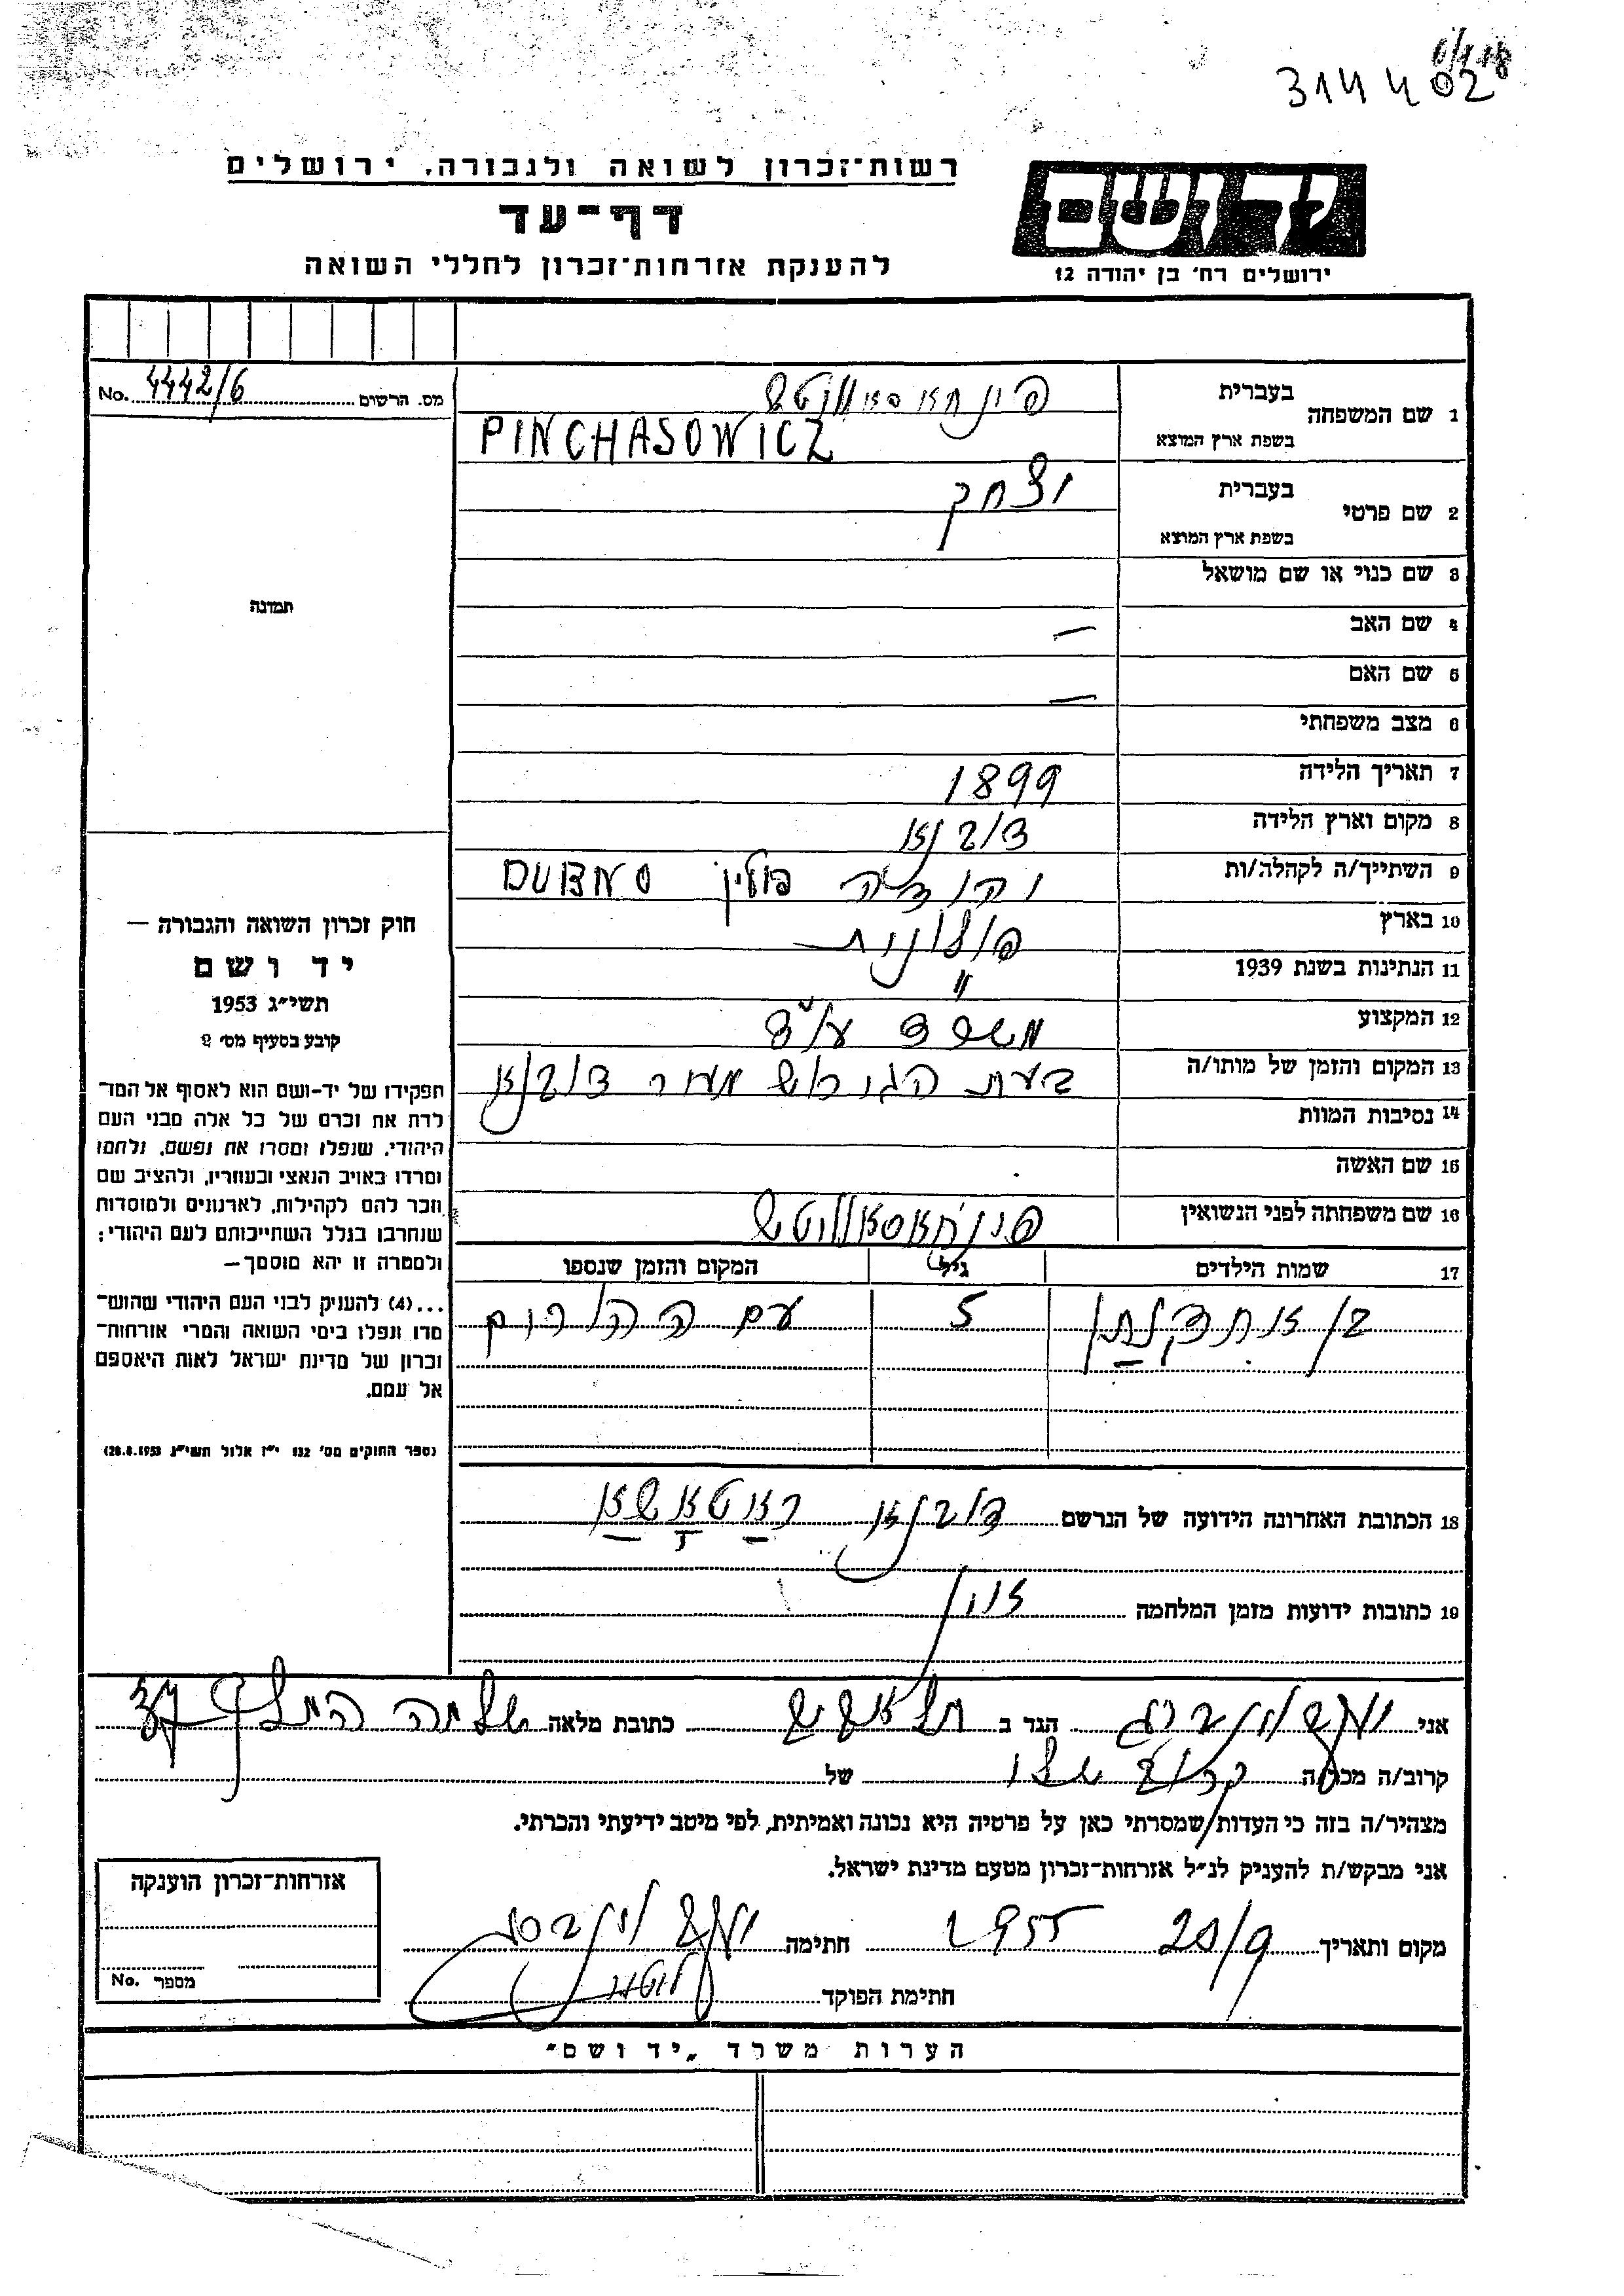 314402
רשות־זכרון לשואה ולגבורה, ירושלים
יד ושם
דף־עד
להענקת אזרחות־זכרון לחללי השואה
ירושלים רח' בן יהודה 12
No. 4442/6 מס. הרשום
1 שם המשפחה
בעברית
בשפת ארץ המוצא PINCHASOWICZ
2 שם פרטי
בעברית יצחק
בשפת ארץ המוצא
3 שם כנוי או שם מושאל
תמונה
4 שם האב —
5 שם האם —
6 מצב משפחתי
7 תאריך הלידה 1899
8 מקום וארץ הלידה דובנא
9 השתייך/ה לקהלה/ות פולין DUBNO
10 בארץ פולנית
11 הנתינות בשנת 1939 "
12 המקצוע
13 המקום והזמן של מותו/ה בעת הגרוש מעיר דובנא
14 נסיבות המוות
15 שם האשה
16 שם משפחתה לפני הנשואין
17 שמות הילדים גיל המקום והזמן שנספו
5 עם ההורים
18 הכתובת האחרונה הידועה של הנרשם דובנא
19 כתובות ידועות מזמן המלחמה
חוק זכרון השואה והגבורה —
יד ושם
תשי"ג 1953
קובע בסעיף מס' 2
תפקידו של יד־ושם הוא לאסוף אל המו־
לדת את זכרם של כל אלה מבני העם
היהודי, שנפלו ומסרו את נפשם, נלחמו
ומרדו באויב הנאצי ובעוזריו, ולהציב שם
וזכר להם לקהילות, לארגונים ולמוסדות
שנחרבו בגלל השתייכותם לעם היהודי;
ולמטרה זו יהא מוסמך—
...(4) להעניק לבני העם היהודי שהוש־
מדו ונפלו בימי השואה והמרי אזרחות־
זכרון של מדינת ישראל לאות היאספם
אל עמם.
(ספר החוקים מס' 132 י"ז אלול תשי"ג 28.8.1953)
אני הגר ב כתובת מלאה שלמה המלך
קרוב/ה מכר/ה של
מצהיר/ה בזה כי העדות שמסרתי כאן על פרטיה היא נכונה ואמיתית, לפי מיטב ידיעתי והכרתי.
אני מבקש/ת להעניק לנ"ל אזרחות־זכרון מטעם מדינת ישראל.
מקום ותאריך 20/9 1955 חתימה
חתימת הפוקד
אזרחות־זכרון הוענקה
מספר No.
הערות משרד „יד ושם"